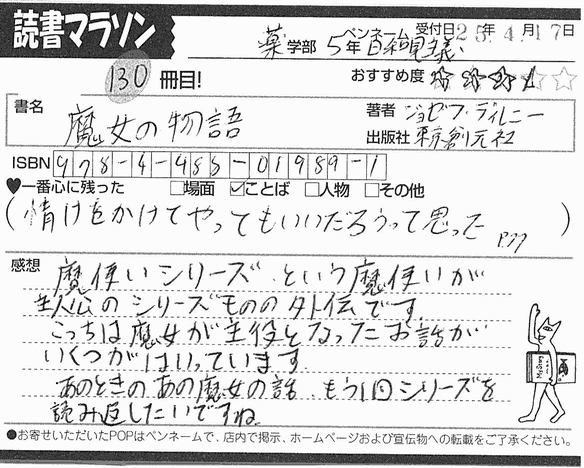 読書マラソン
薬学部 5年 ペンネーム 日和見主義 受付日 25年4月17日
130冊目!
おすすめ度
書名 魔女の物語
著者 ジョゼフ・ディレニー
出版社 東京創元社
ISBN 978-4-488-01989-1
♥一番心に残った □場面 ☑ことば □人物 □その他
(情けをかけてやってもいいだろうって思った P77)
感想
魔使いシリーズ という魔使いが
主人公のシリーズものの外伝です。
こっちは魔女が主役となったお話が
いくつかはいっています
あのときのあの魔女の話 もう1回シリーズを
読み返したいですね
●お寄せいただいたPOPはペンネームで、店内で掲示、ホームページおよび宣伝物への転載をご了承ください。